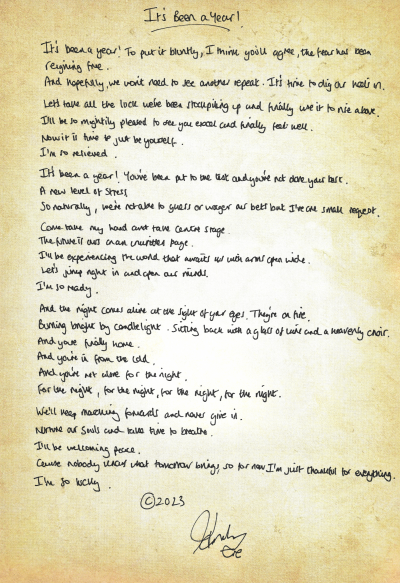 It's Been a Year!
It's been a year! To put it bluntly, I think you'll agree, the fear has been
reigning free.
And hopefully, we won't need to see another repeat. It's time to dig our heels in.
Let's take all the luck we've been stockpiling up and finally use it to rise above.
I'll be so mightily pleased to see you excel and finally feel well.
Now it is time to just be yourself.
I'm so relieved.
It's been a year! You've been put to the test and you're not done your best.
A new level of stress
So naturally, we're not able to guess or wager our bets but I've one small request.
Come take my hand and take centre stage.
The future is our own unwritten page.
I'll be experiencing the world that awaits us with arms open wide.
Let's jump right in and open our minds.
I'm so ready.
And the night comes alive at the sight of your eyes. They're on fire.
Burning bright by candlelight. Sitting back with a glass of wine and a heavenly choir.
And you're finally home.
And you're in from the cold.
And you're not alone for the night.
For the night, for the night, for the night, for the night.
We'll keep marching forwards and never give in.
Nurture our souls and take time to breathe.
I'll be welcoming peace.
Cause nobody knows what tomorrow brings, so for now I'm just thankful for everything.
I'm so lucky.
©2023